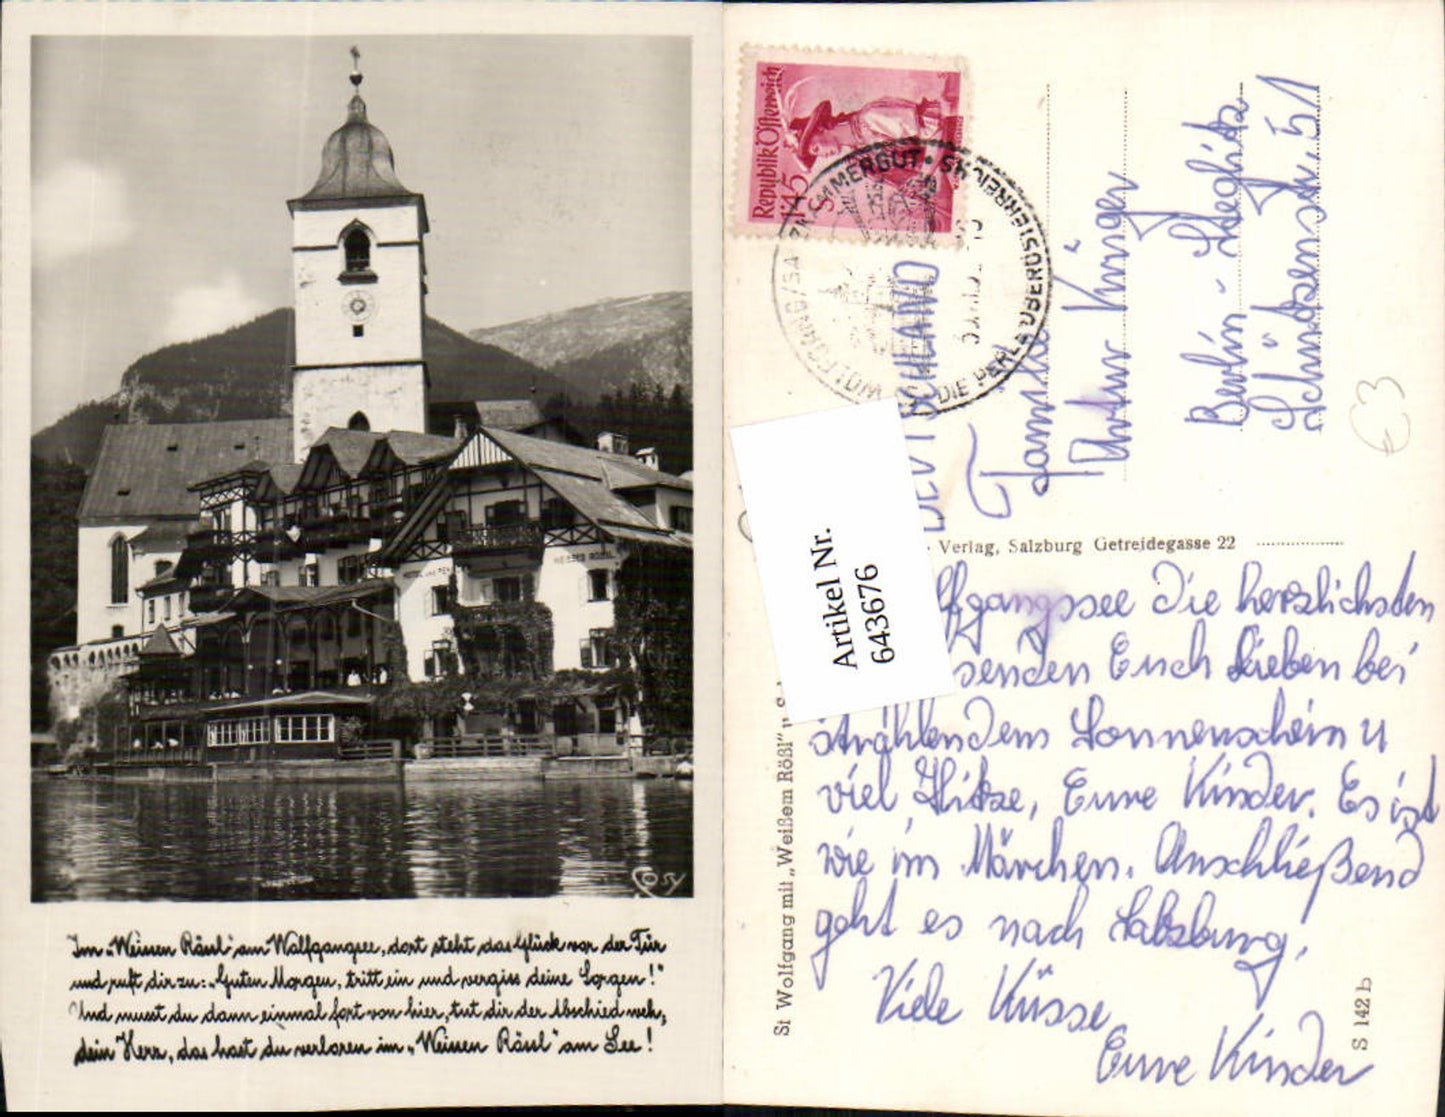 HOTEL UND PEN
WEISSES RÖSSL
Cosy
Im „Weissen Rössl" am Wolfgangsee, dort steht das Glück vor der Tür
und ruft dir zu: „Guten Morgen, tritt ein und vergiss deine Sorgen!"
Und musst du dann einmal fort von hier, tut dir der Abschied weh,
dein Herz, das hast du verloren im „Weissen Rössl" am See!
Republik Österreich
1'45 S
WOLFGANG/SALZKAMMERGUT • DIE PERLE OBERÖSTERREICHS
DEUTSCHLAND
Familie
Artur Krüger
Berlin-Steglitz
Schützenstr. 51
€3
Artikel Nr.
643676
Verlag, Salzburg Getreidegasse 22
St Wolfgang mit „Weißem Rößl" u. S
S 142 b
lfgangssee die herzlichsten
senden Euch Lieben bei
strahlendem Sonnenschein u
viel Hitze, Eure Kinder. Es ist
wie im Märchen. Anschließend
geht es nach Salzburg.
Viele Küsse
Eure Kinder